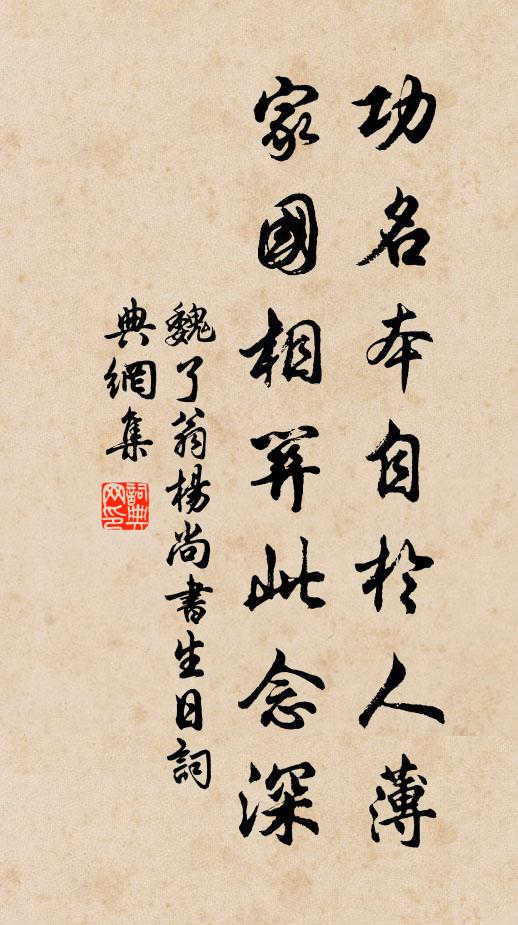 功名本自於人薄
家國相關此念深
魏了翁楊尚書生日詞
典網集
詞典网印